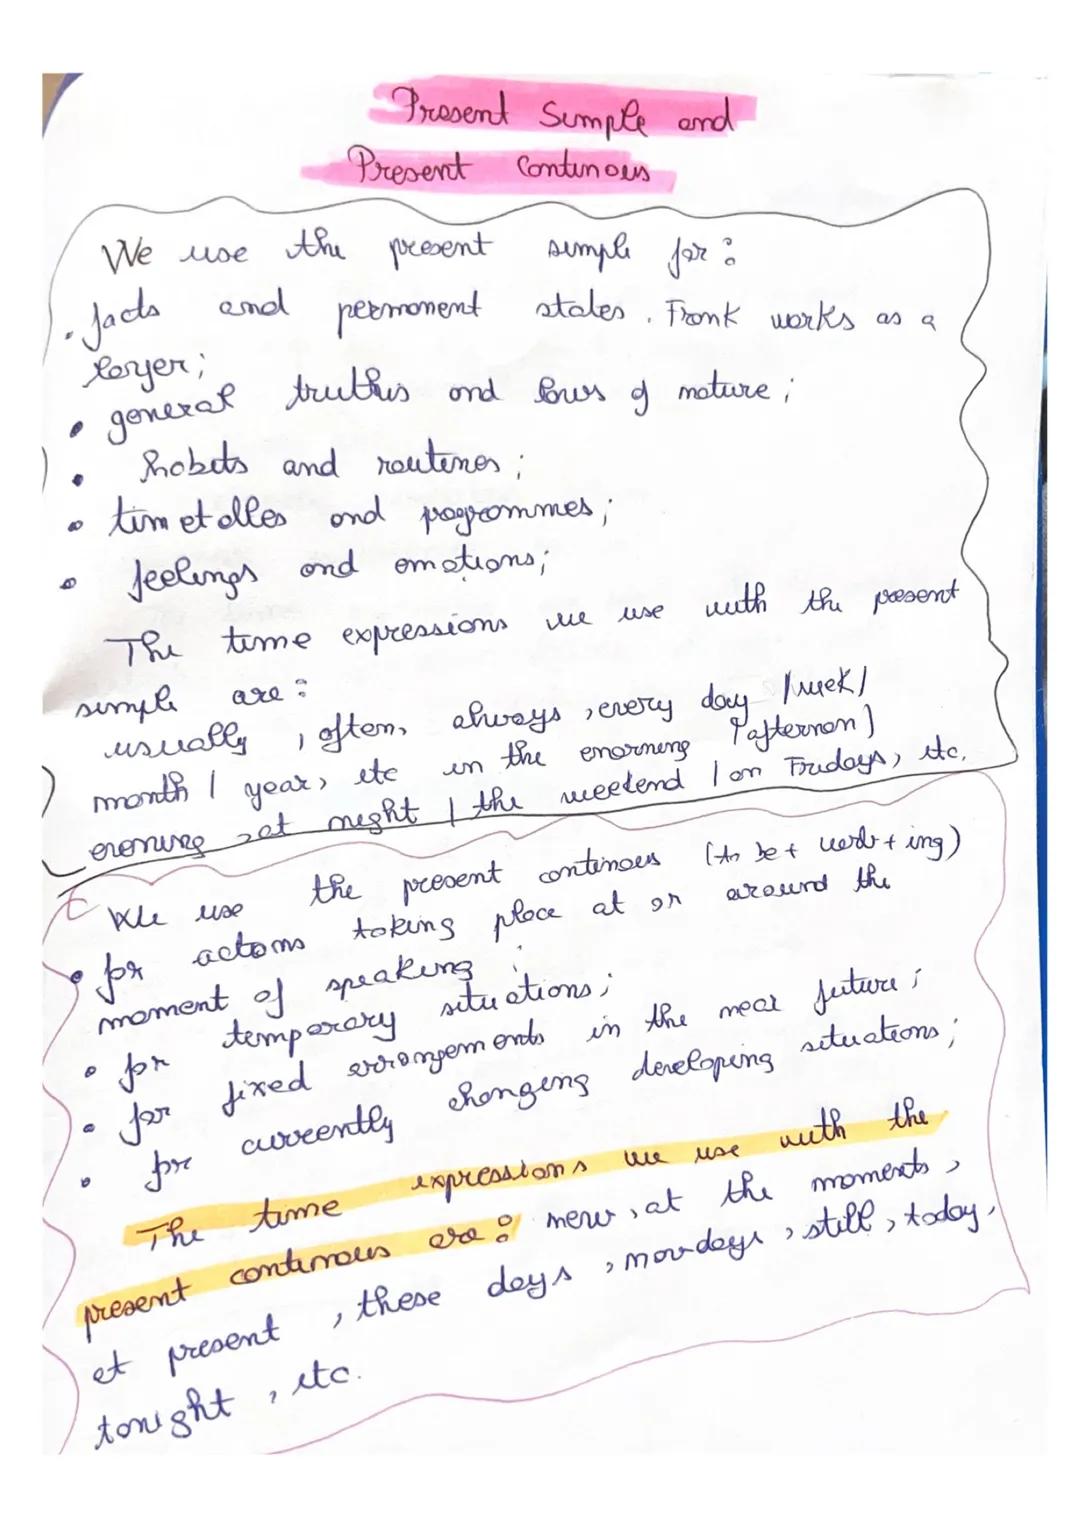 Present Simple and
Present Continous
We use the present simple for:
. facts and permanent states. Frank works as a
layer;
• general truths and laws of nature;
• habits and routines;
• timetables and programmes;
• feelings and emotions;
The time expressions we use with the present
simple are:
usually, often, always, every day /week/
month / year, etc in the morning /afternoon/
evening, at night / the weekend / on Fridays, etc.
We use the present continous (to be + verb + ing)
• for actions taking place at or around the
moment of speaking;
• for temporary situations;
• for fixed arrangements in the near future;
• for currently changing developing situations;
The time expressions we use with the
present continous are: now, at the moments,
at present, these days, nowdays, still, today,
tonight, etc.